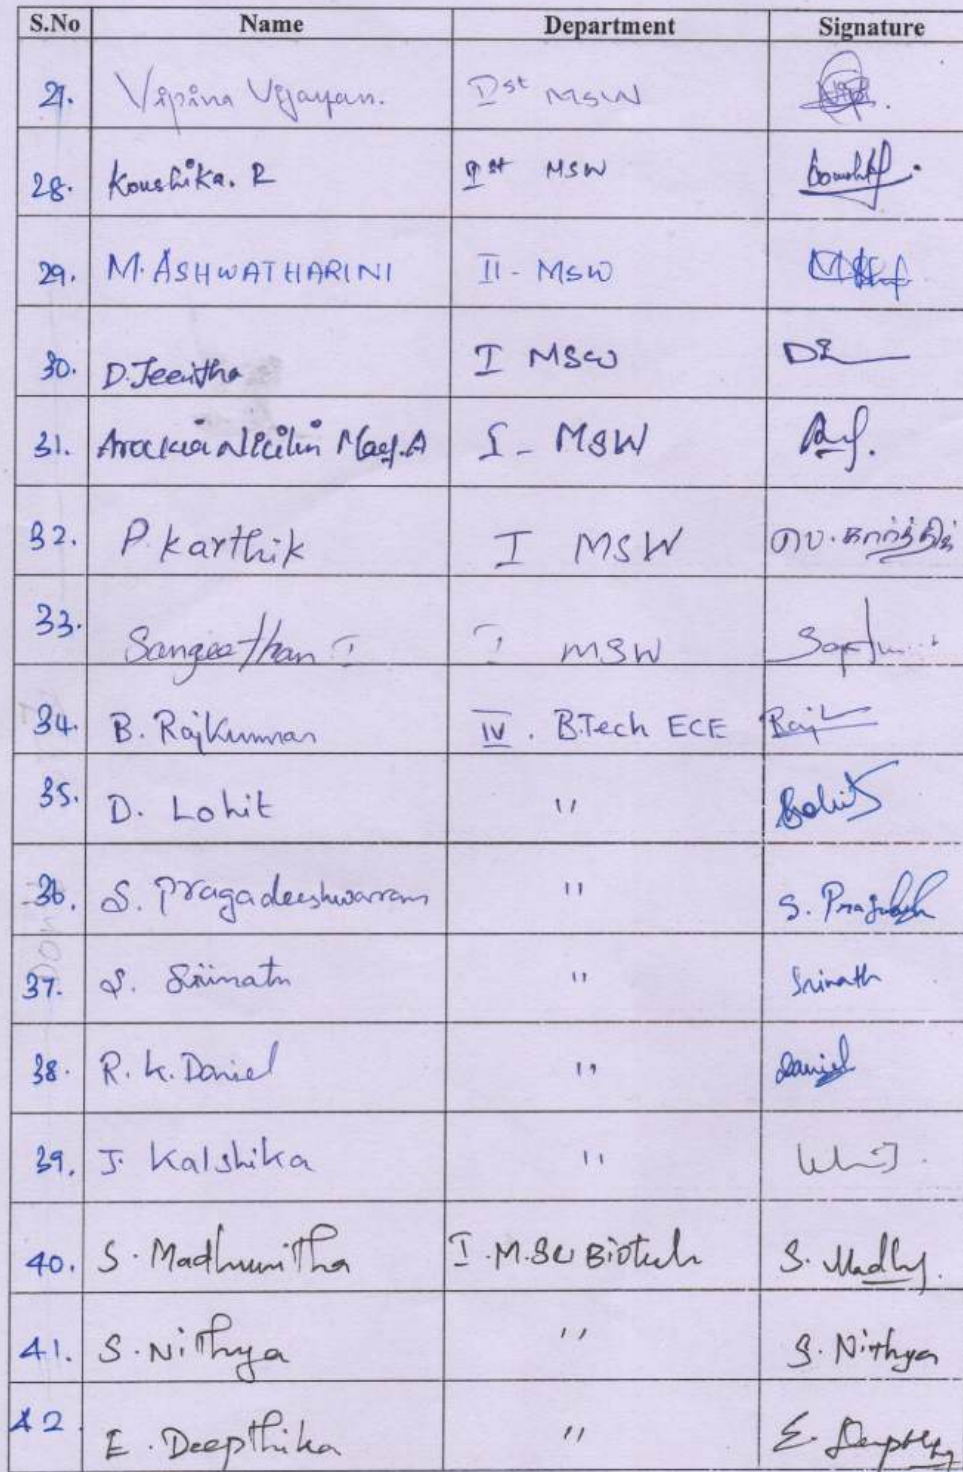 S.No Name Department Signature
27. Vipina Vijayan. Ist MSW
28. Koushika. R Ist MSW
29. M. ASHWATHARINI II - MSW
30. D. Jeevitha I MSW
31. Arockia Nicilin Mary. A I - MSW
32. P. Karthik I MSW பெ. கார்த்திக்
33. Sangeethan I I MSW
34. B. RajKumar IV . B.Tech ECE Raj
35. D. Lohit " Lohit
36. S. Pragadeeshwaram "
37. S. Srinath " Srinath
38. R. K. Daniel " Daniel
39. J. Kalshika "
40. S. Madhumitha I. M.Sc Biotech S. Madhu.
41. S. Nithya " S. Nithya
42. E. Deepthika "